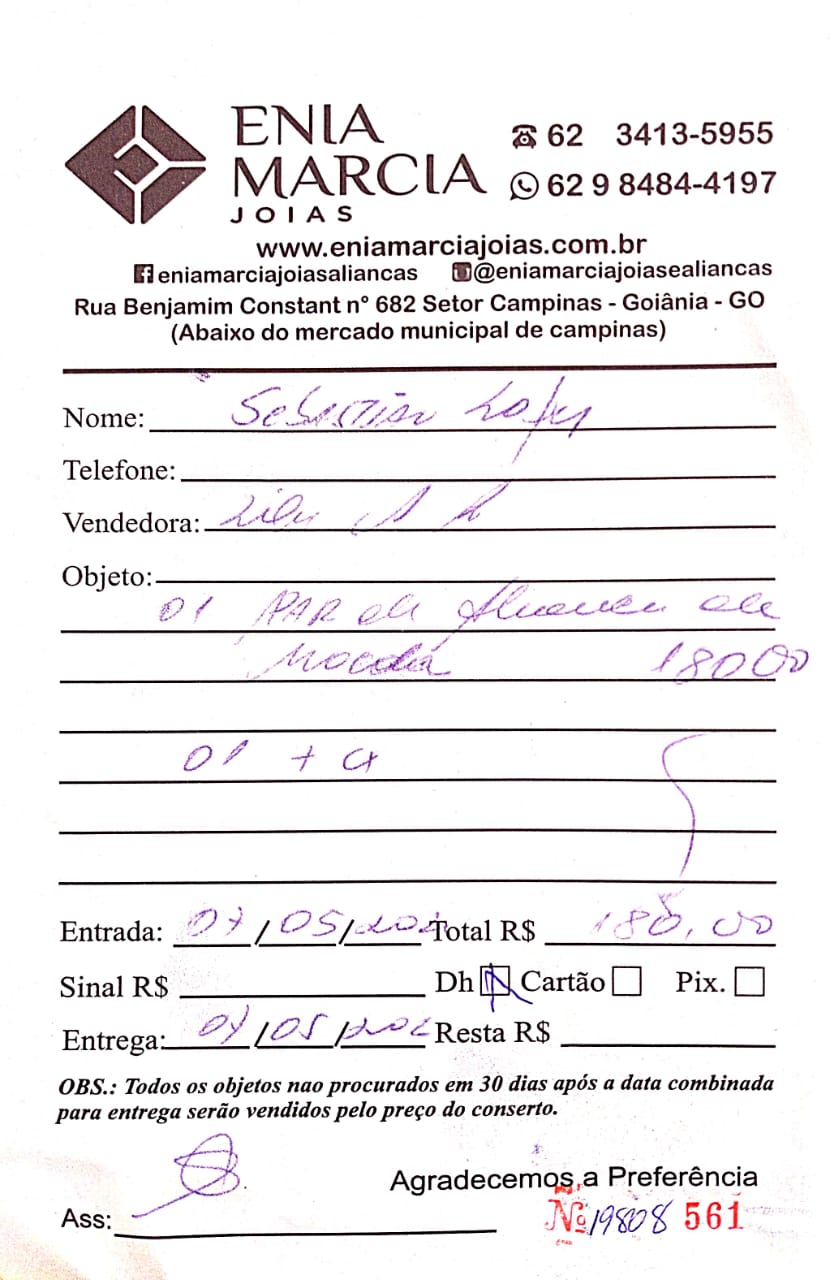 ENIA
MARCIA
JOIAS
62 3413-5955
62 9 8484-4197
www.eniamarciajoias.com.br
eniamarciajoiasaliancas @eniamarciajoiasealiancas
Rua Benjamim Constant n° 682 Setor Campinas - Goiânia - GO
(Abaixo do mercado municipal de campinas)
Nome:
Telefone:
Vendedora:
Objeto:
01 PAR de de
18000
01 +
Entrada: 07/05/ Total R$ 180,00
Sinal R$ Dh Cartão Pix.
Entrega: 07/05/ Resta R$
OBS.: Todos os objetos nao procurados em 30 dias após a data combinada
para entrega serão vendidos pelo preço do conserto.
Agradecemos a Preferência
Ass:
Nº 19808 561